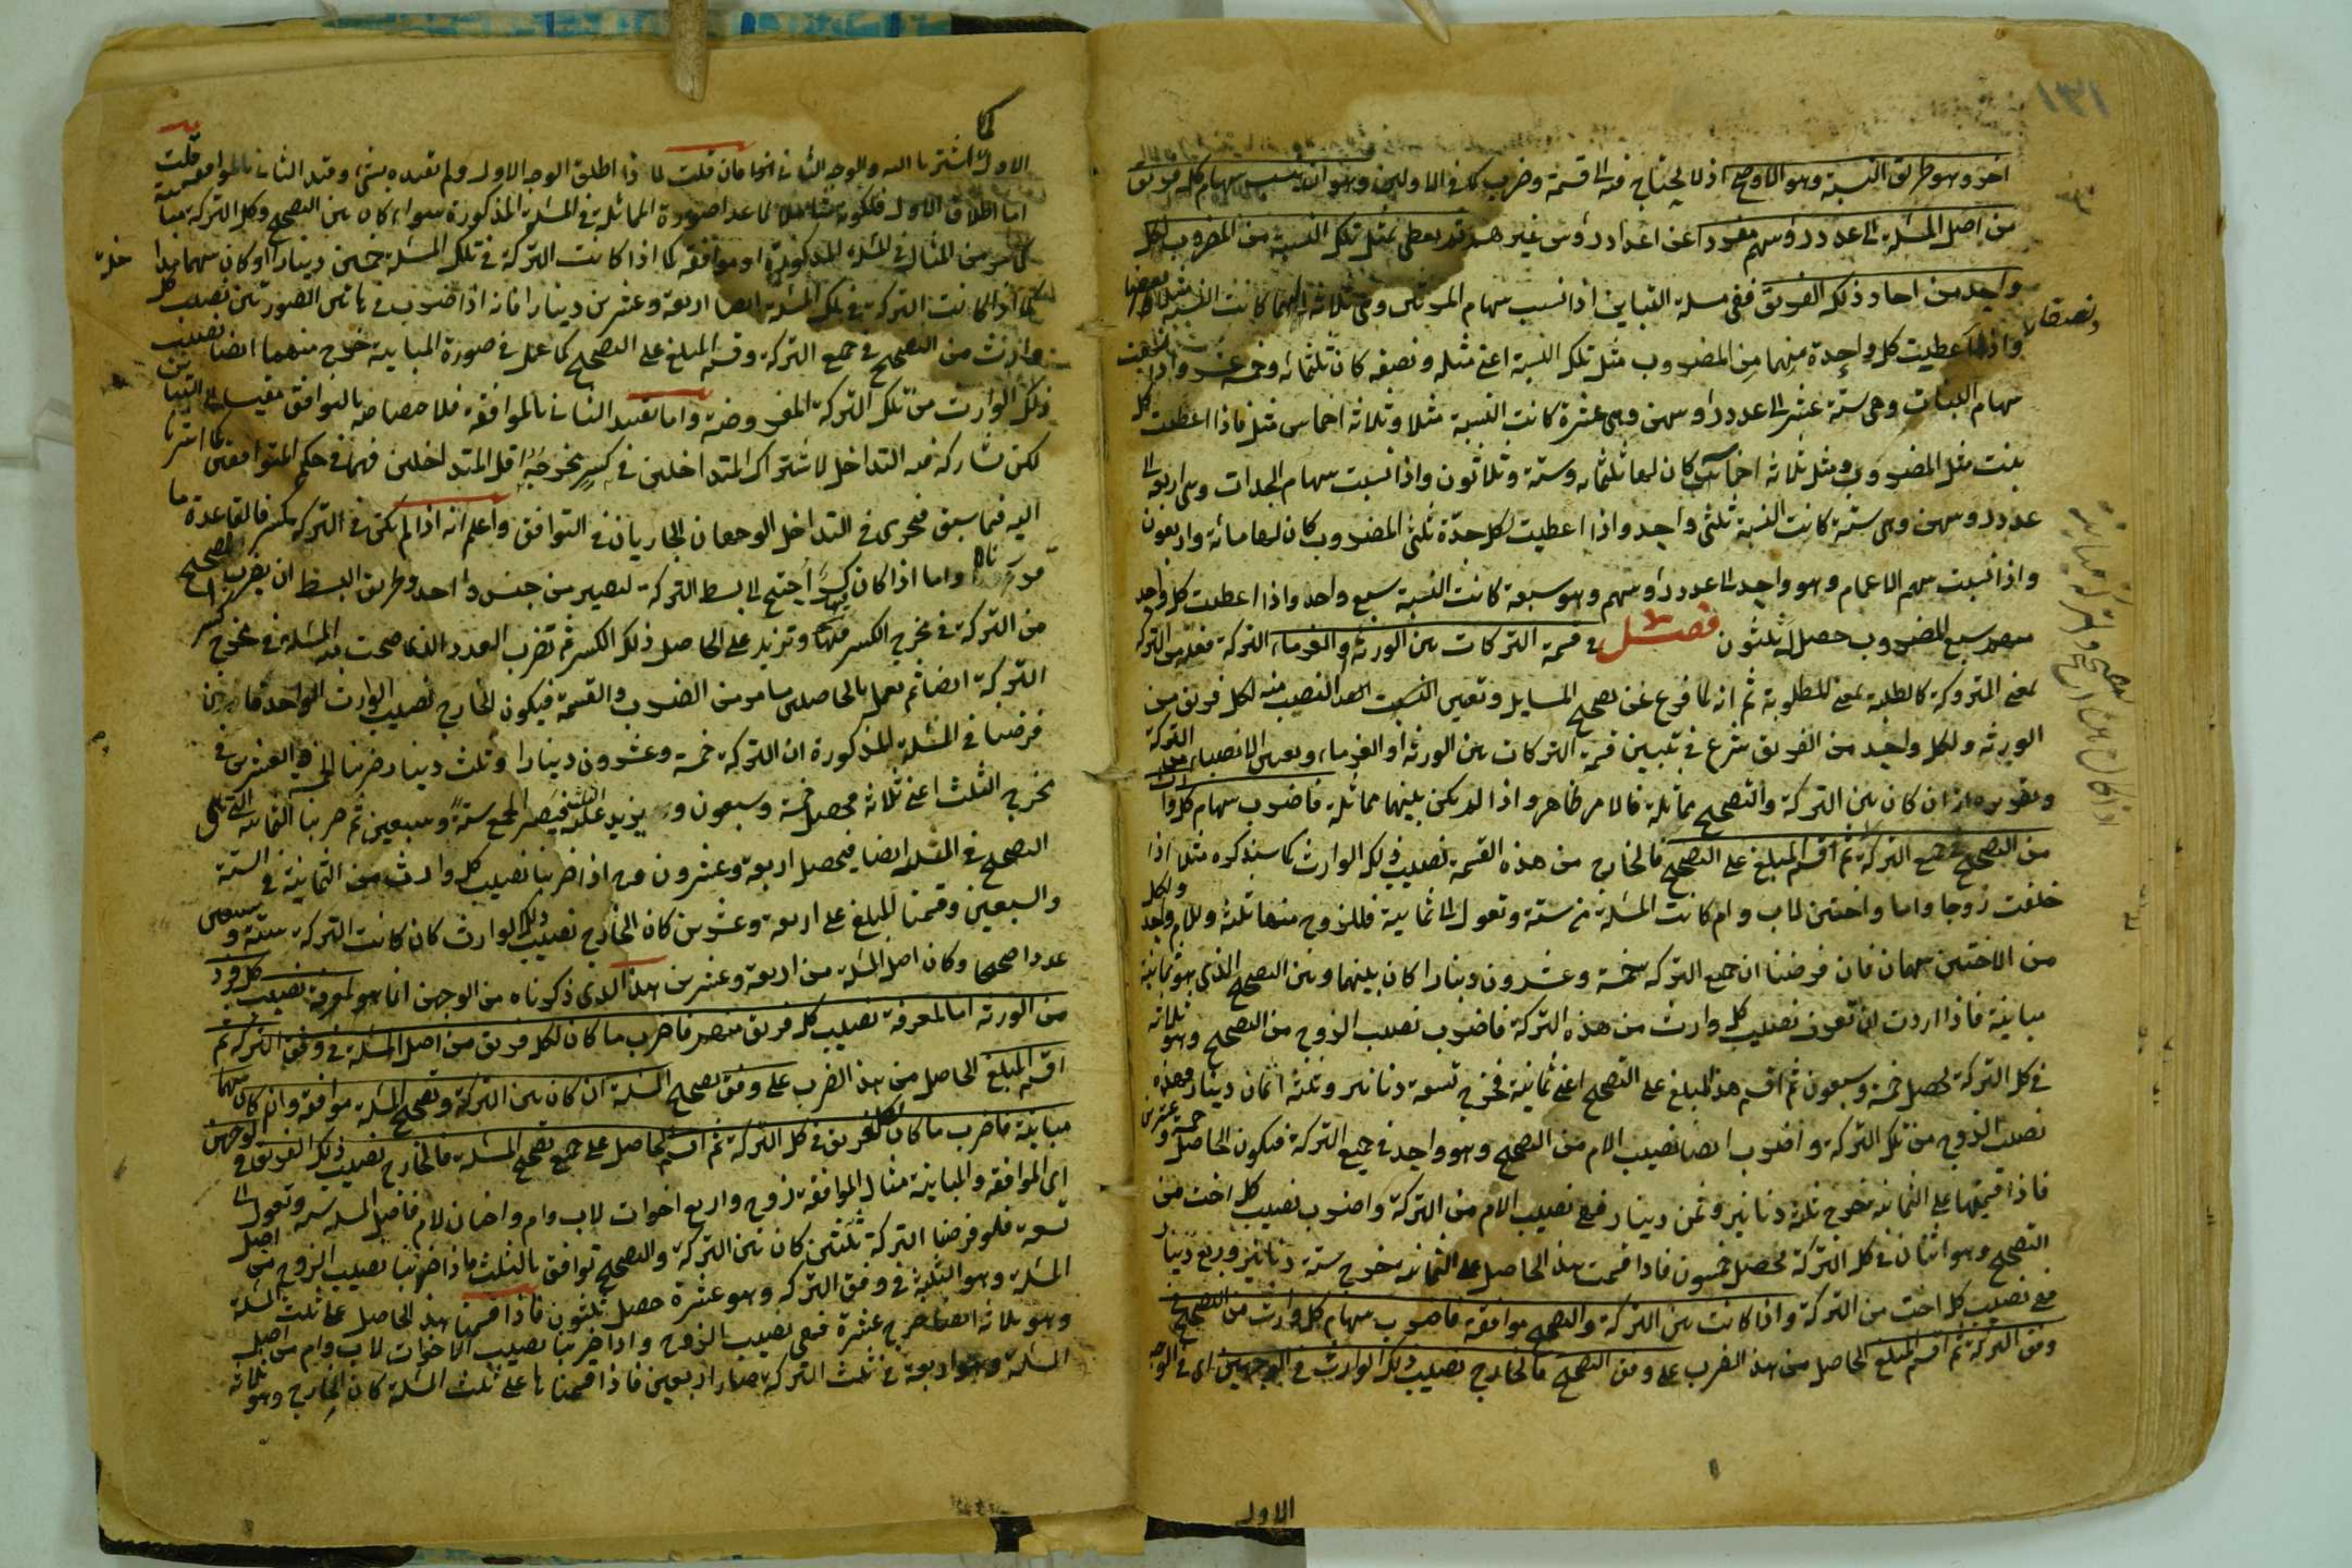 ١٣١
اخر وهو طريق النسبة وهو الاوضح اذ لا يحتاج فيه الى قسمة وضرب كما في الاولين وهو ان تنسب سهام كل فريق
من اصل المسئلة الى عدد رؤسهم مفردا عن اعداد رؤس غيرهم ثم تعطى بمثل تلك النسبة من المضروب لكل
واحد من احاد ذلك الفريق ففي مسئلة التباين اذا نسبت سهام المرأتين وهي ثلاثة اليهما كانت النسبة مثلا و
نصفا
واذا اعطيت كل واحدة منهما من المضروب مثل تلك النسبة اعني مثله ونصفه كان ثلثمائة وخمسة عشر واذا نسبت
سهام البنات وهي ستة عشر الى عدد رؤسهن وهي عشرة كانت النسبة مثلا وثلاثة اخماس مثل فاذا اعطيت كل
بنت مثل المضروب ومثل ثلاثة اخماسه كان لها ثلثمائة وستة وثلاثون واذا نسبت سهام الجدات وهي اربعة الى
عدد رؤسهن وهي ستة كانت النسبة ثلثى واحد واذا اعطيت لكل جدة ثلثى المضروب كان لها مائة واربعون
واذا نسبت سهم الاعمام وهو واحد الى عدد رؤسهم وهو سبعة كانت النسبة سبع واحد واذا اعطيت كل واحد
منهم سبع المضروب حصل له ثلثون فصل في قسمة التركات بين الورثة والغرماء التركة فعلة من الترك
بمعنى المتروكة كالطلبة بمعنى المطلوبة ثم انه لما فرغ عن تصحيح المسايل وتعيين النصيب منه لكل فريق من
الورثة ولكل واحد من الفريق شرع في تبيين قسمة التركات بين الورثة او الغرماء وتعيين الانصباء من التركة
وتقريره ان كان بين التركة والتصحيح مماثلة فالامر ظاهر واذا لم يكن بينهما مماثلة فاضرب سهام كل وارث
من التصحيح في جميع التركة ثم اقسم المبلغ على التصحيح فالخارج من هذه القسمة نصيب ذلك الوارث كما سنذكره مثلا اذا
خلفت زوجا واما واختين لاب وام كانت المسئلة من ستة وتعول الى ثمانية فللزوج منها ثلثة وللام واحد ولكل
من الاختين سهمان فان فرضنا ان جميع التركة خمسة وعشرون دينارا كان بينهما وبين التصحيح الذي هو ثمانية
مباينة فاذا اردت ان تعرف نصيب كل وارث من هذه التركة فاضرب نصيب الزوج من التصحيح وهو ثلاثة
في كل التركة تحصل خمسة وسبعون ثم اقسم هذا المبلغ على التصحيح اعني ثمانية فخرج تسعة دنانير وثلثة اثمان دينار فهذه
نصيب الزوج من تلك التركة واضرب ايضا نصيب الام من التصحيح وهو واحد في جميع التركة فيكون الحاصل خمسة وعشرين
فاذا قسمتها على الثمانية خرج ثلثة دنانير وثمن دينار فهي نصيب الام من التركة واضرب نصيب كل اخت من
التصحيح وهو اثنان في كل التركة تحصل خمسون فاذا قسمت هذا الحاصل على الثمانية خرج ستة دنانير وربع دينار
فهي نصيب كل اخت من التركة واذا كانت بين التركة والتصحيح موافقة فاضرب سهام كل وارث من التصحيح في
وفق التركة ثم اقسم المبلغ الحاصل من هذا الضرب على وفق التصحيح فالخارج نصيب ذلك الوارث في الوجهين اى في الوجه
الاول
كما
الاول اشرنا اليه والوجه الثاني فان قلت لما ذا اطلق الوجه الاول ولم يقيده بشئ وقيد الثاني بالموافقة قلت
اما اطلاق الاول فلكونه شاملا لما عدا صورة المماثلة في المسئلة المذكورة سواء كان بين التصحيح وكل التركة مباينة
كما مر من المثال في المسئلة المذكورة او موافقة كما اذا كانت التركة في تلك المسئلة خمسين دينارا او كان بينهما مداخلة
كما اذا كانت التركة في تلك المسئلة ايضا اربعة وعشرين دينارا فانه اذا ضرب في هاتين الصورتين نصيب كل
وارث من التصحيح في جميع التركة وقسم المبلغ على التصحيح كما عمل في صورة المباينة خرج منهما ايضا نصيب
ذلك الوارث من تلك التركة المفروضة واما تقييد الثاني بالموافقة فلاختصاصه بالتوافق مقيسا الى التباين
لكن تشاركه فيه التداخل لاشتراك المتداخلين في كسر مخرجه اقل المتداخلين فهما في حكم المتوافقين كما اشرنا
اليه فيما سبق فيجرى في التداخل الوجهان الجاريان في التوافق واعلم انه اذا لم يكن في التركة كسر فالقاعدة ما
قررناه واما اذا كان فيها كسر احتيج الى بسط التركة لتصير من جنس واحد وطريق البسط ان يضرب الصحيح
من التركة في مخرج الكسر منها وتزيد على الحاصل ذلك الكسر ثم تضرب العدد الذى صحت منه المسئلة في مخرج كسر
التركة ايضا ثم يعمل بالحاصلين ما مر من الضرب والقسمة فيكون الخارج نصيب الوارث الواحد فان
فرضنا في المسئلة المذكورة ان التركة خمسة وعشرون دينارا وثلث دينار ضربنا الخمسة والعشرين في
مخرج الثلث اعني ثلاثة فحصل خمسة وسبعون و نزيد عليه فيصير المجموع ستة وسبعين ثم ضربنا الثمانية التي هي
التصحيح في الثلثة ايضا فيحصل اربعة وعشرون فاذا ضربنا نصيب كل وارث من الثمانية في الستة
والسبعين وقسمنا المبلغ على اربعة وعشرين كان الخارج نصيب ذلك الوارث كان كانت التركة ستة وسبعين
عددا صحيحا وكان اصل المسئلة من اربعة وعشرين هذا الذى ذكرناه من الوجهين انما هو لمعرفة نصيب كل فرد
من الورثة اما لمعرفة نصيب كل فريق منهم فاضرب ما كان لكل فريق من اصل المسئلة في وفق التركة ثم
اقسم المبلغ الحاصل من هذا الضرب على وفق تصحيح المسئلة ان كان بين التركة وتصحيح المسئلة موافقة وان كان بينهما
مباينة فاضرب ما كان لكل فريق في كل التركة ثم اقسم الحاصل على جميع تصحيح المسئلة فالخارج نصيب ذلك الفريق في الوجهين
اى الموافقة والمباينة مثال الموافقة زوج واربع اخوات لاب وام واختان لام فاصل المسئلة ستة وتعول الى
تسعة فلو فرضنا التركة ثلثين كان بين التركة والتصحيح توافق بالثلث فاذا ضربنا نصيب الزوج من اصل
المسئلة وهو الثلثة في وفق التركة وهو عشرة حصل ثلثون فاذا قسمنا هذا الحاصل على ثلث المسئلة
وهو ثلاثة ايضا خرج عشرة فهي نصيب الزوج واذا ضربنا نصيب الاخوات لاب وام من اصل
المسئلة وهو اربعة في ثلث التركة صار اربعين فاذا قسمناها على ثلث المسئلة كان الخارج وهو ثلاثة